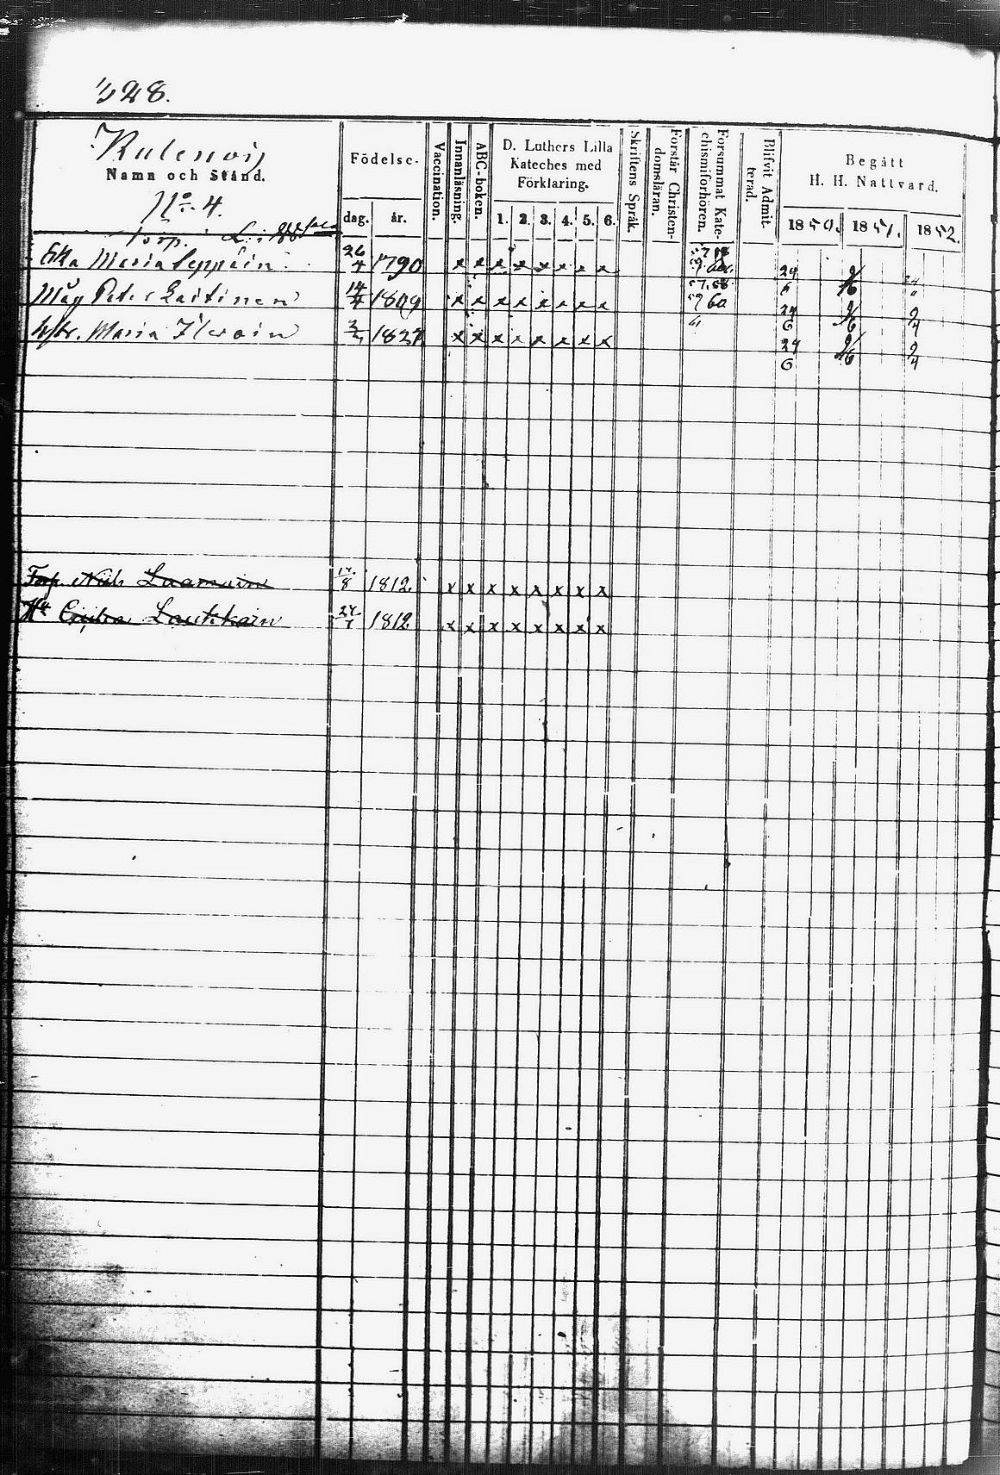 328.
Kulenoi
Namn och Stånd.
No 4.
Födelse-
dag. år.
Vaccination.
Innanläsning.
ABC-boken.
D. Luthers Lilla
Kateches med
Förklaring.
1. 2. 3. 4. 5. 6.
Skriftens Språk.
Förstår Christen-
domsläran.
Försummat Kate-
chismiförhören.
Blifvit Admit-
terad.
Begått
H. H. Nattvard.
1850. 1851. 1852.
Torp.
Maria Leppäin 26/4 1790 x x x x x x x x 24/6
Måg Peter Laitinen 14/4 1809 x x x x x x x x 60 24/6 9/6 2/4
Hstr. Maria 1827 x x x x x x x x 24/6 9/6 2/4
Torp. Nils Laamain 8 1812 x x x x x x x x
Hu Laukkain 1812 x x x x x x x x